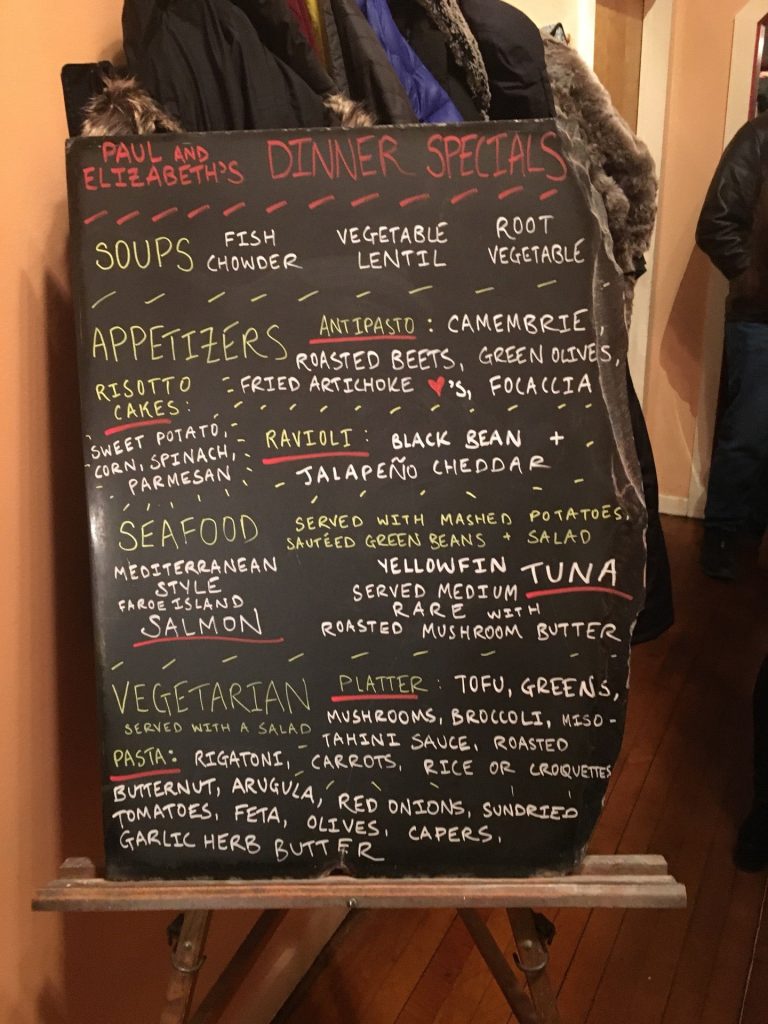 PAUL AND
ELIZABETH'S
DINNER SPECIALS
SOUPS
FISH
CHOWDER
VEGETABLE
LENTIL
ROOT
VEGETABLE
APPETIZERS
ANTIPASTO: CAMEMBRIE,
ROASTED BEETS, GREEN OLIVES,
FRIED ARTICHOKE ♥'S, FOCACCIA
RISOTTO
CAKES:
SWEET POTATO,
CORN, SPINACH,
PARMESAN
RAVIOLI: BLACK BEAN +
JALAPEÑO CHEDDAR
SEAFOOD
SERVED WITH MASHED POTATOES,
SAUTÉED GREEN BEANS + SALAD
MEDITERRANEAN
STYLE
FAROE ISLAND
SALMON
YELLOWFIN TUNA
SERVED MEDIUM
RARE WITH
ROASTED MUSHROOM BUTTER
VEGETARIAN
SERVED WITH A SALAD
PLATTER: TOFU, GREENS,
MUSHROOMS, BROCCOLI, MISO-
TAHINI SAUCE, ROASTED
CARROTS, RICE OR CROQUETTES
PASTA: RIGATONI,
BUTTERNUT, ARUGULA, RED ONIONS, SUNDRIED
TOMATOES, FETA, OLIVES, CAPERS,
GARLIC HERB BUTTER